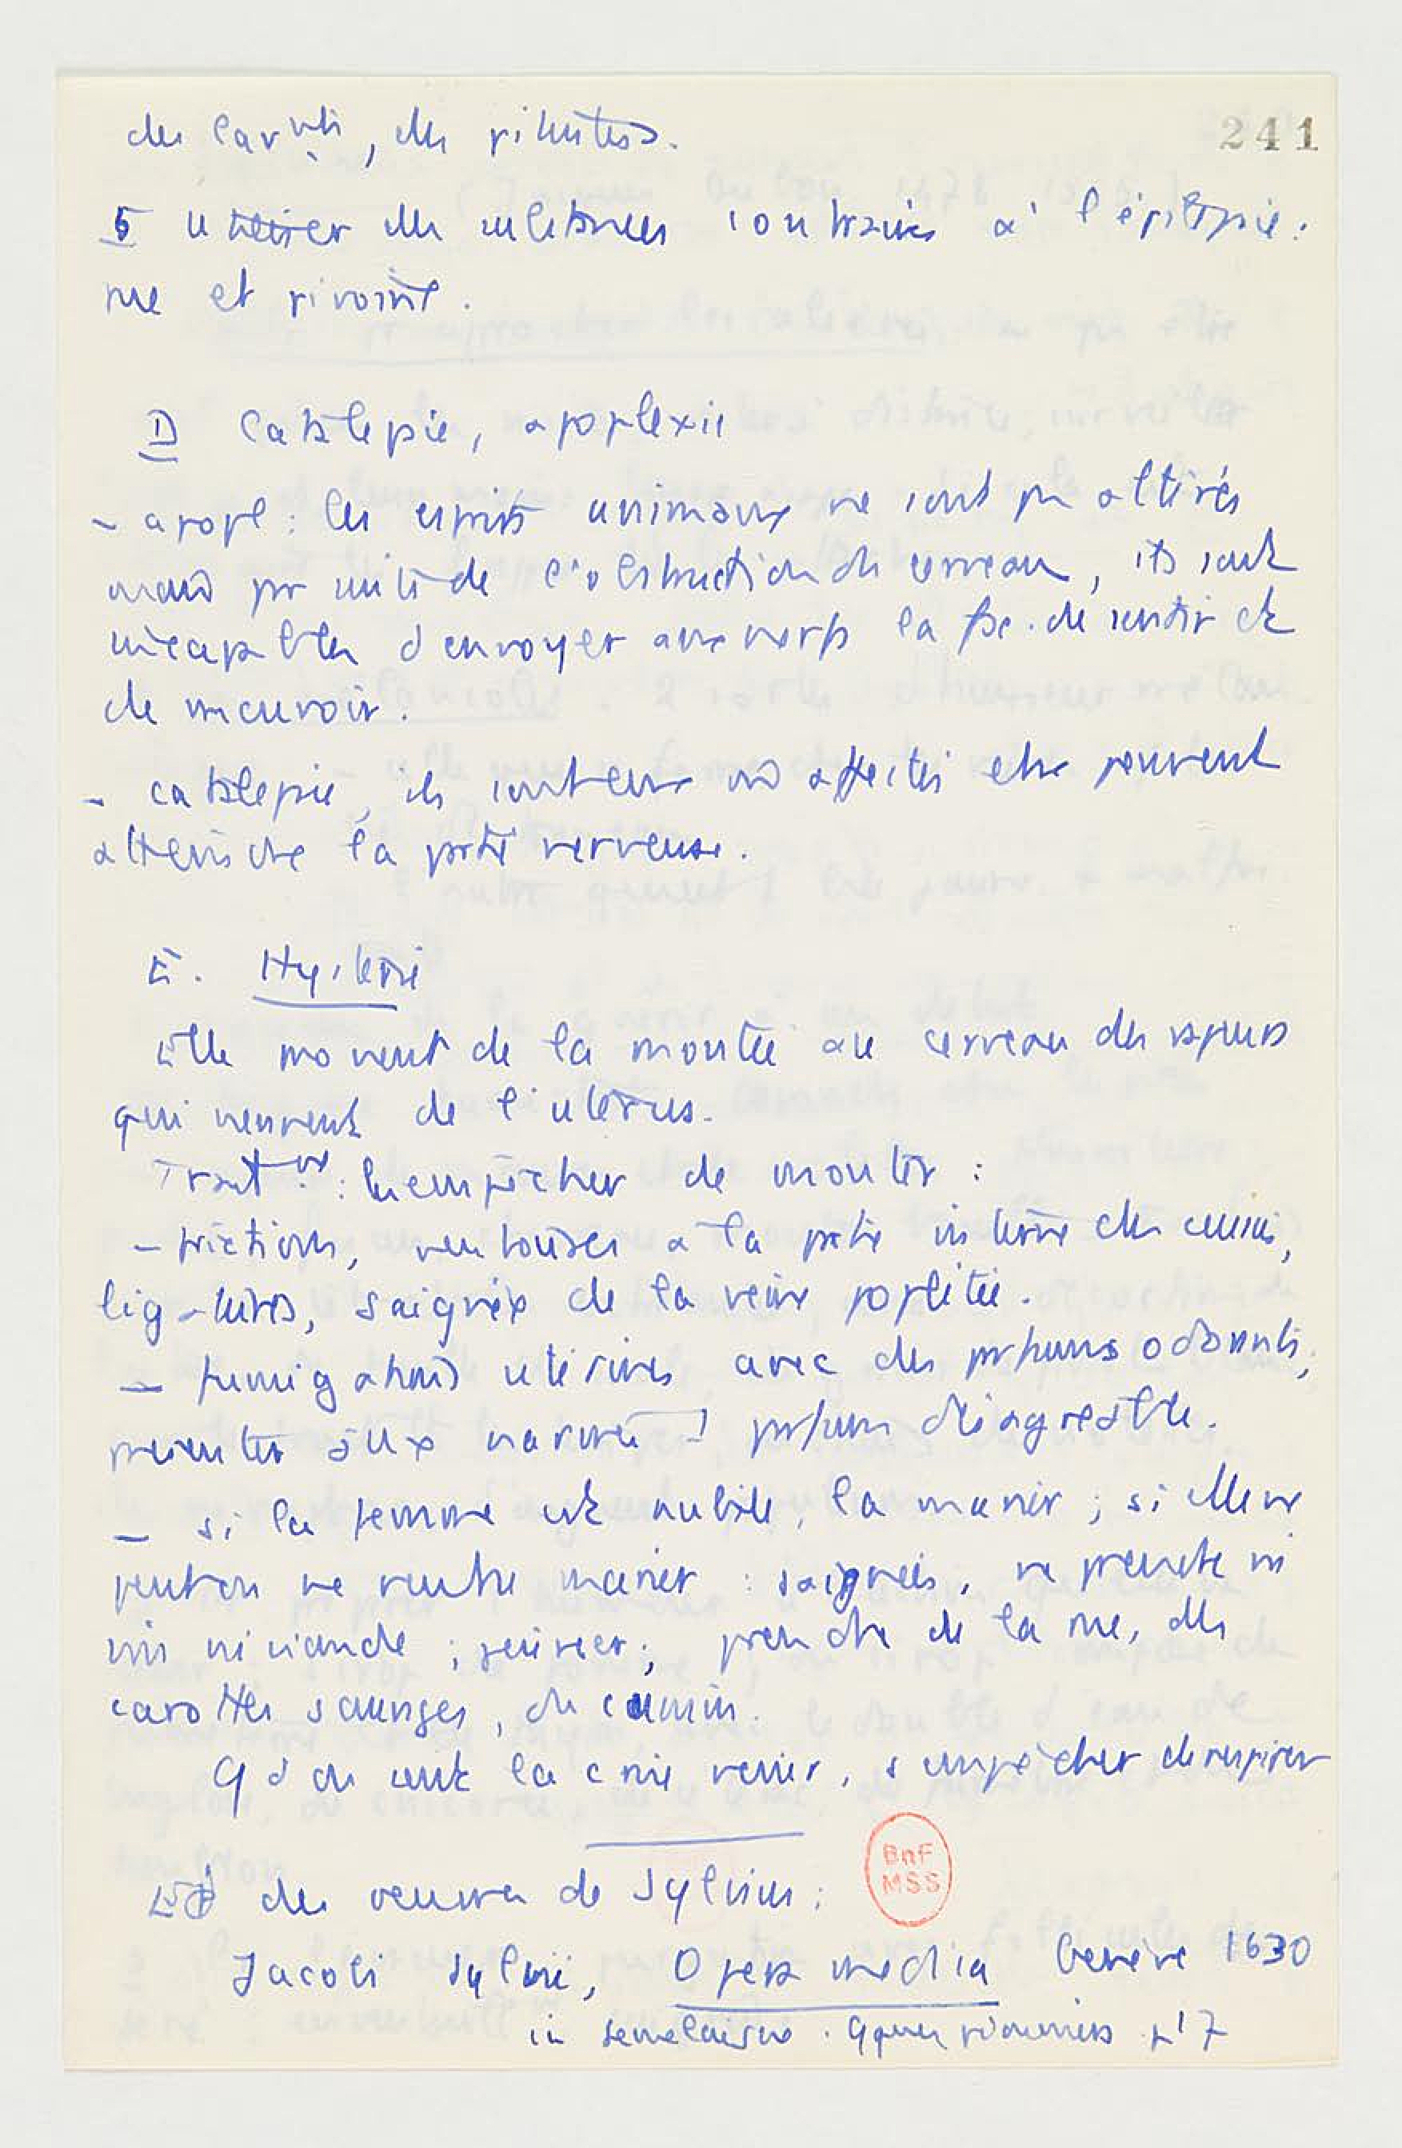 des laxatifs, des pilules.
241
5 utiliser des substances contraires à l'épilepsie :
rue et pivoine.
D Catalepsie, apoplexie
- apopl : les esprits animaux ne sont pas altérés
mais par suite de l'obstruction du cerveau, ils sont
incapables d'envoyer aux nerfs la fac. de sentir et
de mouvoir.
- catalepsie, ils sont eux aussi affectés et ne peuvent
atteindre la partie nerveuse.
E. Hystérie
Elle provient de la montée au cerveau des vapeurs
qui viennent de l'utérus.
Trait nt : les empêcher de monter :
- frictions, ventouses à la partie interne des cuisses,
ligatures, saignée de la veine poplitée.
- fumigations utérines avec des parfums odorants ;
présenter aux narines parfum désagréable.
- si la femme est nubile, la marier ; si elle ne
peut ou ne veut se marier : saignées, ne prendre ni
vin ni viande ; ; prendre de la rue, des
carottes sauvages, du cumin.
Qd on sent la crise venir, s'empêcher de respirer
Ed des oeuvres de Sylvius :
Jacobi Sylvii, Opera medica Genève 1630
in Semelaigne. Quelques pionniers p. 17
BnF
MSS